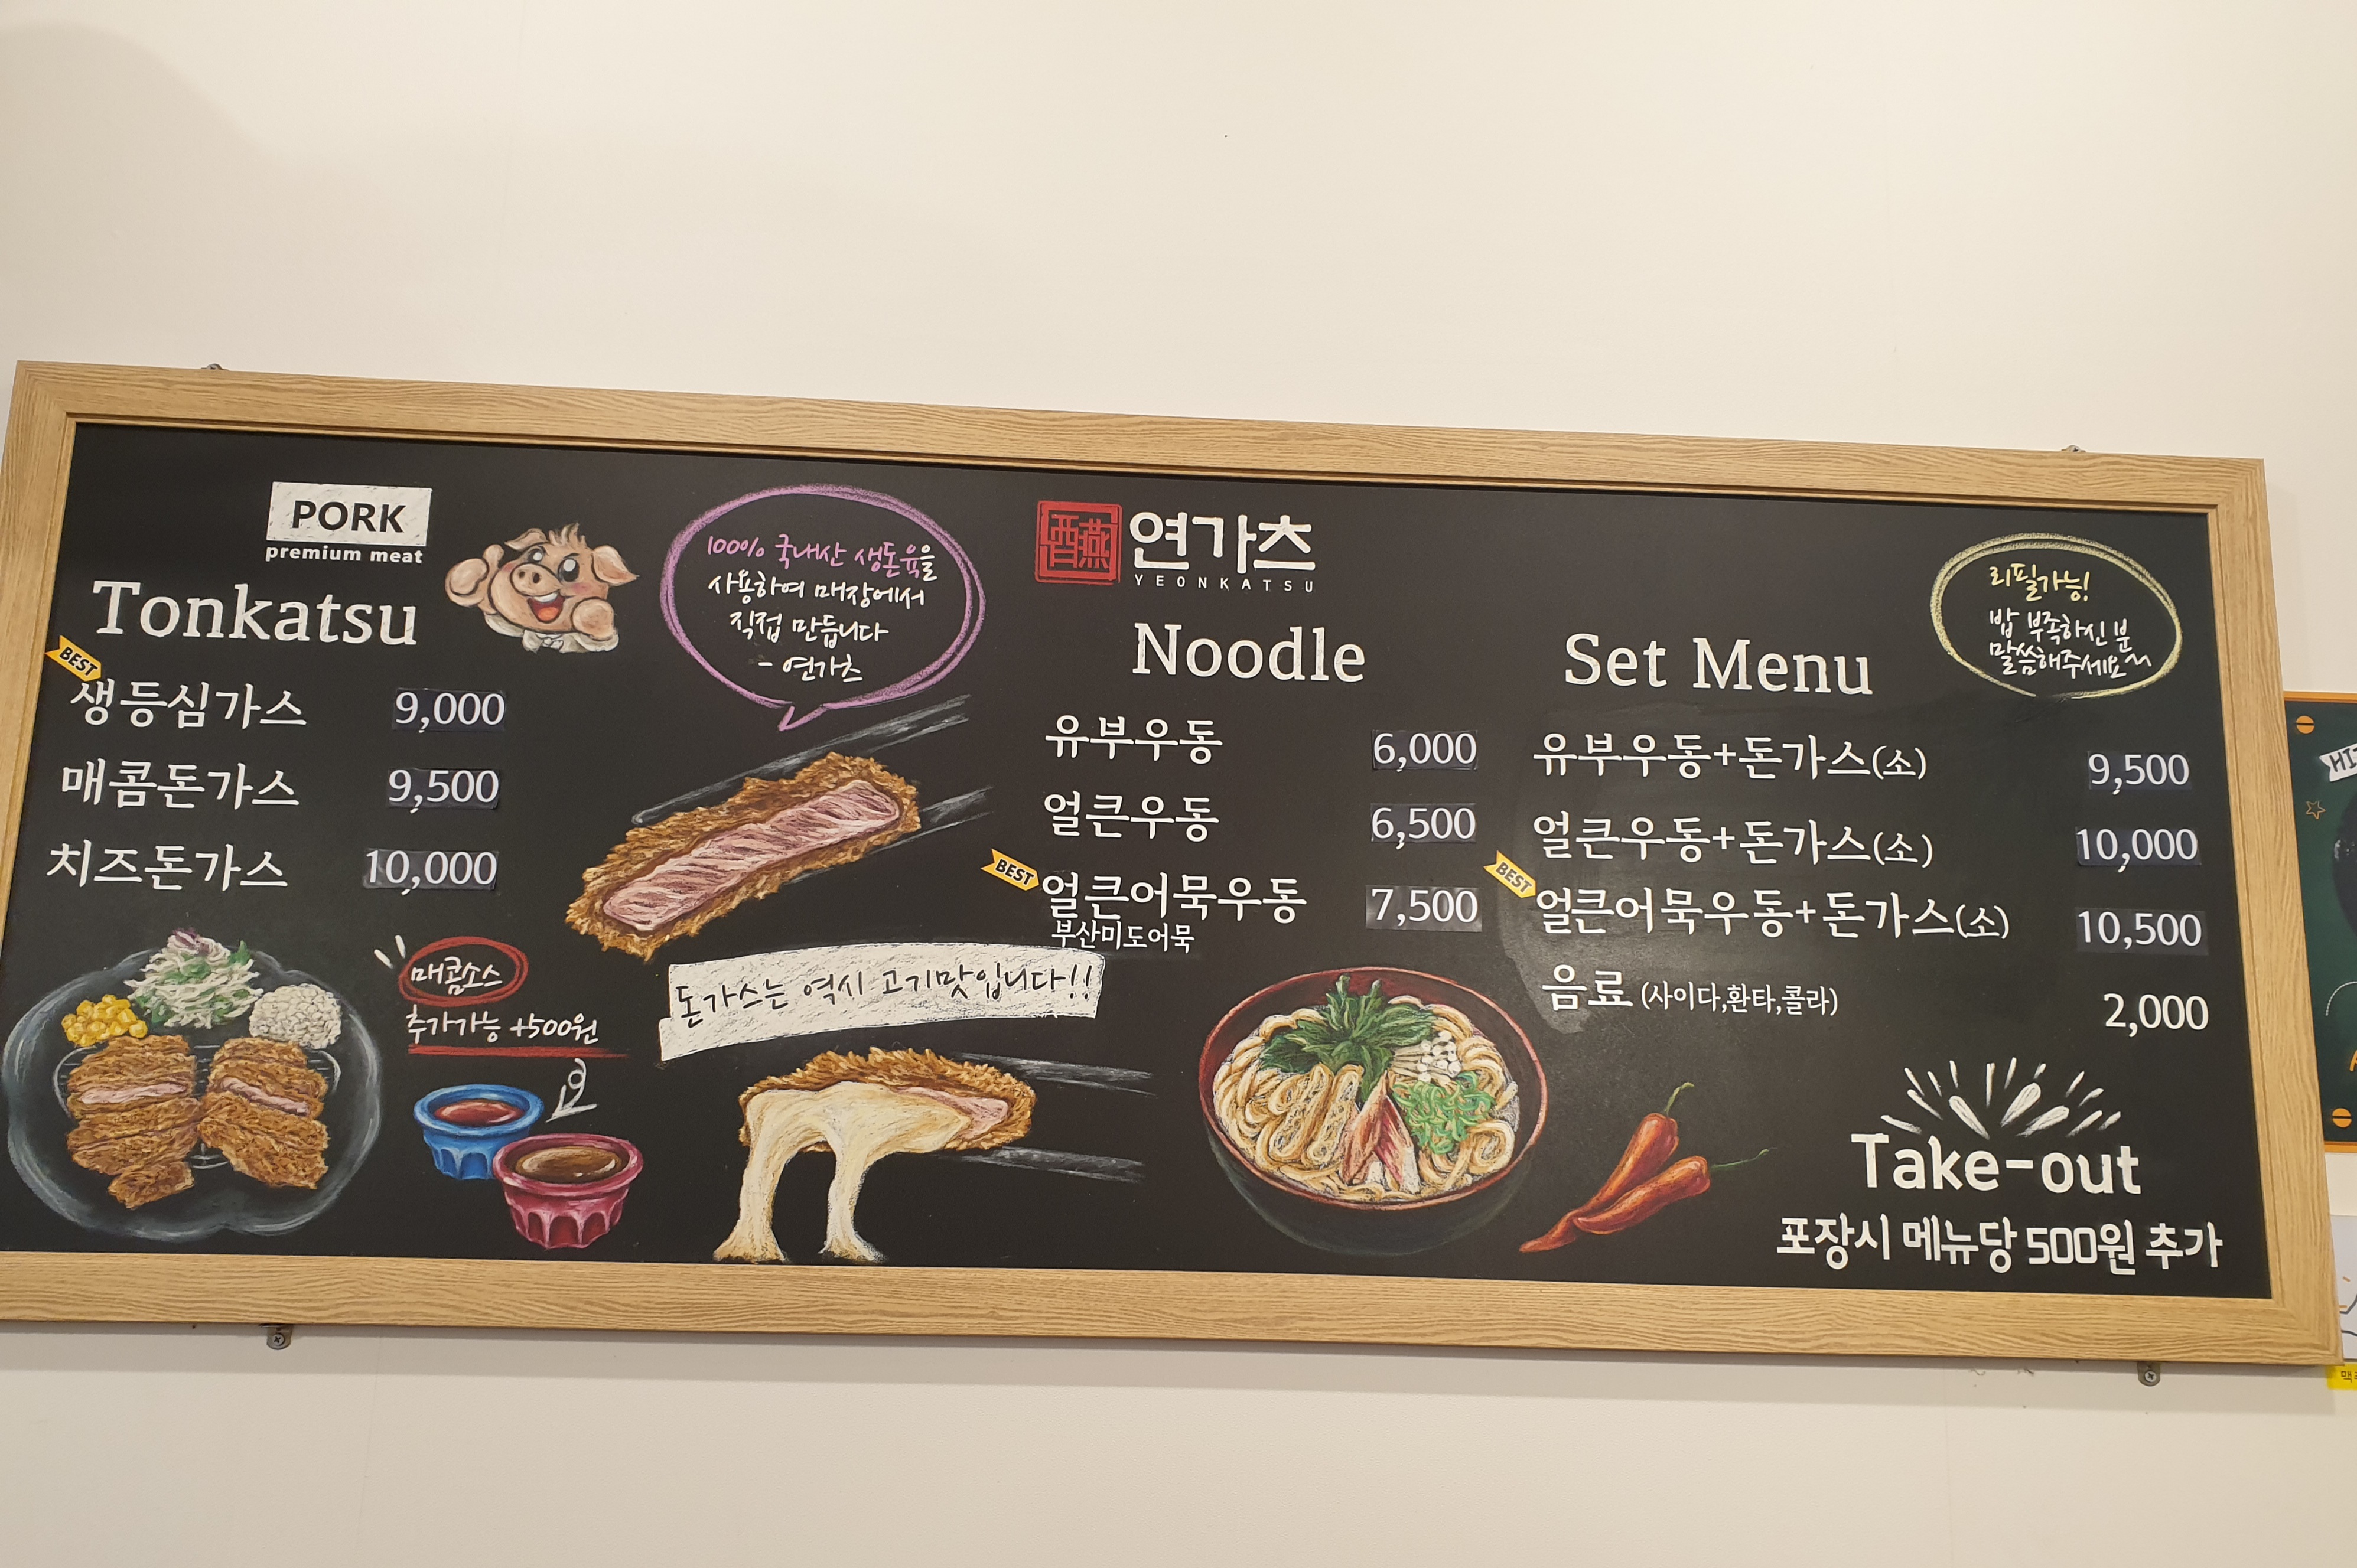 PORK
premium meat
Tonkatsu
BEST
생등심가스 9,000
매콤돈가스 9,500
치즈돈가스 10,000
매콤소스
추가가능 +500원
100% 국내산 생돈육을
사용하여 매장에서
직접 만듭니다
- 연가츠
돈가스는 역시 고기맛입니다!!
연가츠
YEONKATSU
Noodle
유부우동 6,000
얼큰우동 6,500
BEST
얼큰어묵우동 7,500
부산미도어묵
Set Menu
리필가능!
밥 부족하신 분
말씀해주세요~
유부우동+돈가스(소) 9,500
얼큰우동+돈가스(소) 10,000
BEST
얼큰어묵우동+돈가스(소) 10,500
음료 (사이다,환타,콜라) 2,000
Take-out
포장시 메뉴당 500원 추가